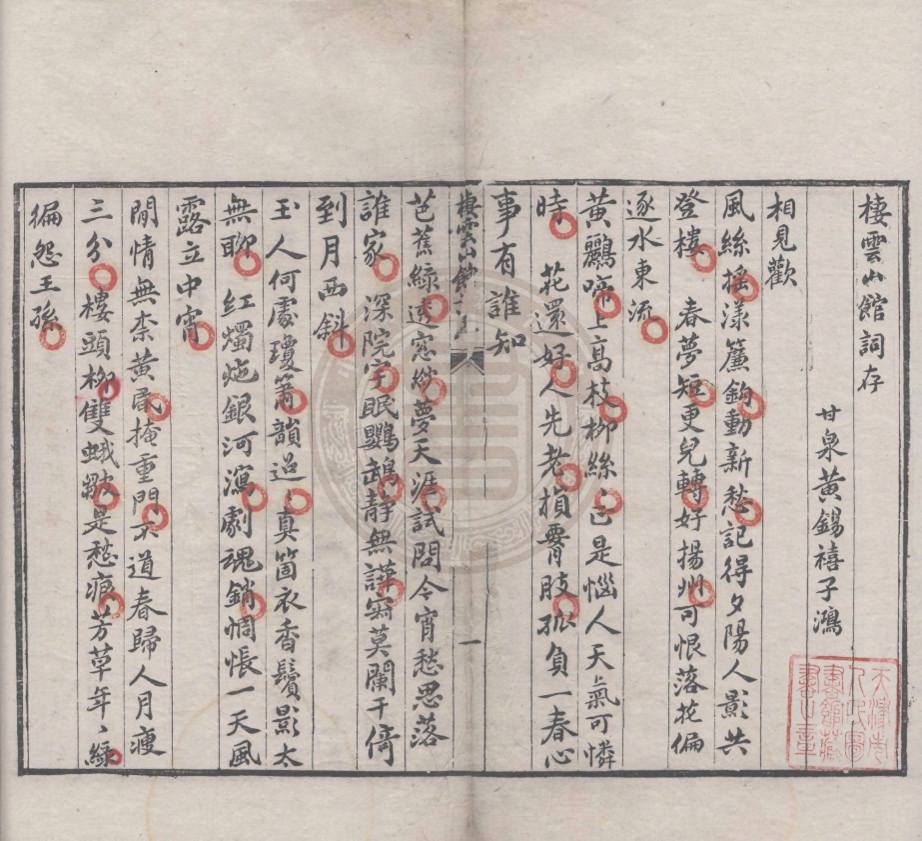 棲雲山館詞存
甘泉黃錫禧子鴻
相見歡
風絲搖漾簾鉤動新愁記得夕陽人影共
登樓　春夢短更兒轉好揚州可恨落花偏
逐水東流
黃鸝啼上高枝柳絲絲已是惱人天氣可憐
時　花還好人先老損腰肢孤負一春心
事有誰知
棲雲山館
一
芭蕉綠透窓紗夢天涯試問今宵愁思落
誰家　深院宇眠鸚鵡靜無譁寂莫闌干倚
到月西斜
玉人何處瓊簫韻過〻真箇衣香鬢影太
無聊　紅燭灺銀河瀉劇魂銷惆悵一天風
露立中宵
閒情無柰黃昏掩重門不道春歸人月瘦
三分　樓頭柳雙蛾皺是愁痕芳草年〻綠
徧怨王孫
天津市
人民圖
書館藏
書之章